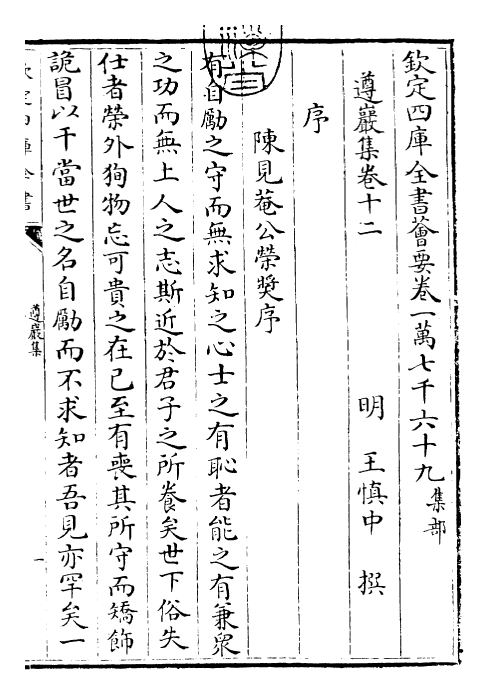 欽定四庫全書薈要卷一萬七千六十九集部
遵巖集卷十二
明 王慎中 撰
序
陳見菴公榮奬序
有自勵之守而無求知之心士之有恥者能之有兼衆
之功而無上人之志斯近於君子之所養矣世下俗失
仕者榮外狥物忘可貴之在已至有喪其所守而矯飾
詭冒以干當世之名自勵而不求知者吾見亦罕矣一
欽定四庫全書
遵巖集
一